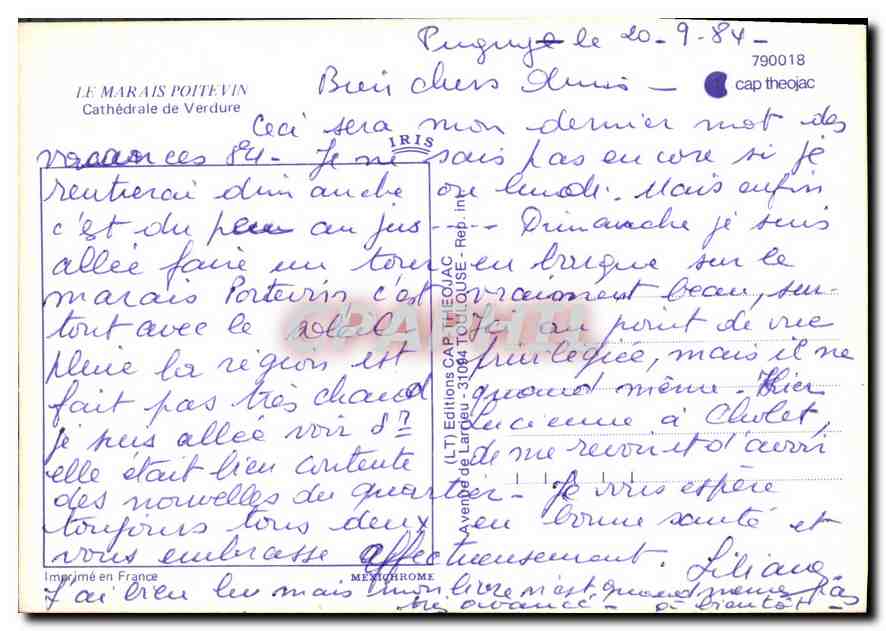 Puy le 20-9-84-
790018
cap theojac
LE MARAIS POITEVIN
Cathédrale de Verdure
Bien chers Amis -
Ceci sera mon dernier mot des
IRIS
vacances 84 - Je ne sais pas encore si je
rentrerai dimanche ou lundi. Mais enfin
c'est du peu au jus ---- Dimanche je suis
allée faire un tour en barque sur le
marais Poitevin c'est vraiment beau, sur-
tout avec le soleil. Ici au point de vue
pluie la région est privilégiée, mais il ne
fait pas très chaud quand même. Hier
je suis allée voir Lucienne à Cholet,
elle était bien contente de me revoir et d'avoir
des nouvelles du quartier - Je vous espère
toujours tous deux en bonne santé et
vous embrasse affectueusement. Liliane
(LT) Editions CAP THEOJAC
Avenue de Larrieu - 31094 TOULOUSE - Rep. int.
CPAPHIL
Imprimé en France
MEXICHROME
J'ai bien lu mais mon livre n'est quand même pas
très avancé - à bientôt -